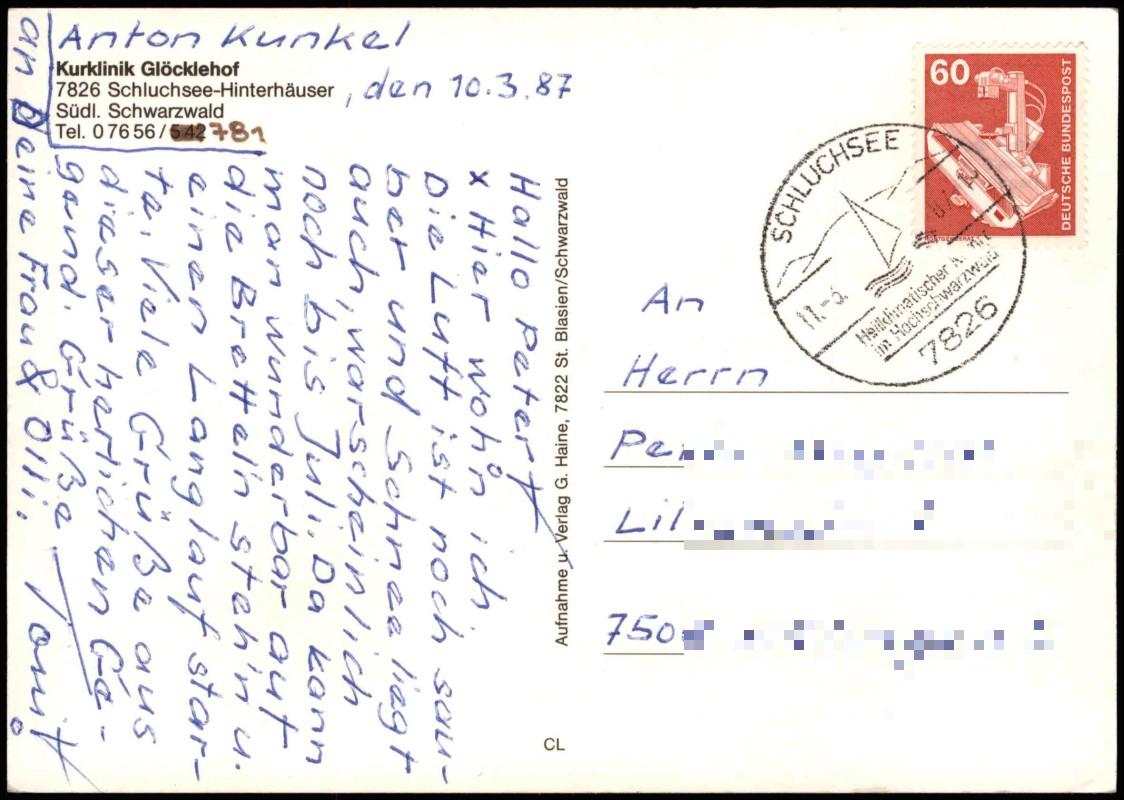 Anton Kunkel
Kurklinik Glöcklehof
7826 Schluchsee-Hinterhäuser
Südl. Schwarzwald
Tel. 0 76 56 / 542 781
, den 10.3.87
Hallo Peter!
x Hier wohn ich
Die Luft ist noch sau-
ber und Schnee liegt
auch, warscheinlich
noch bis Juli. Da kann
man wunderbar auf
die Bretteln steh'n u.
einen Langlauf star-
ta. Viele Grüße aus
dieser herlichen Ge-
gend. Grüße
an Deine Frau & Olli. Toni
Aufnahme u. Verlag G. Haine, 7822 St. Blasien/Schwarzwald
CL
60
DEUTSCHE BUNDESPOST
SCHLUCHSEE
11.-3.
87
12
Heilklimatischer Kurort
im Hochschwarzwald
7826
An
Herrn
Pe
Lil
750